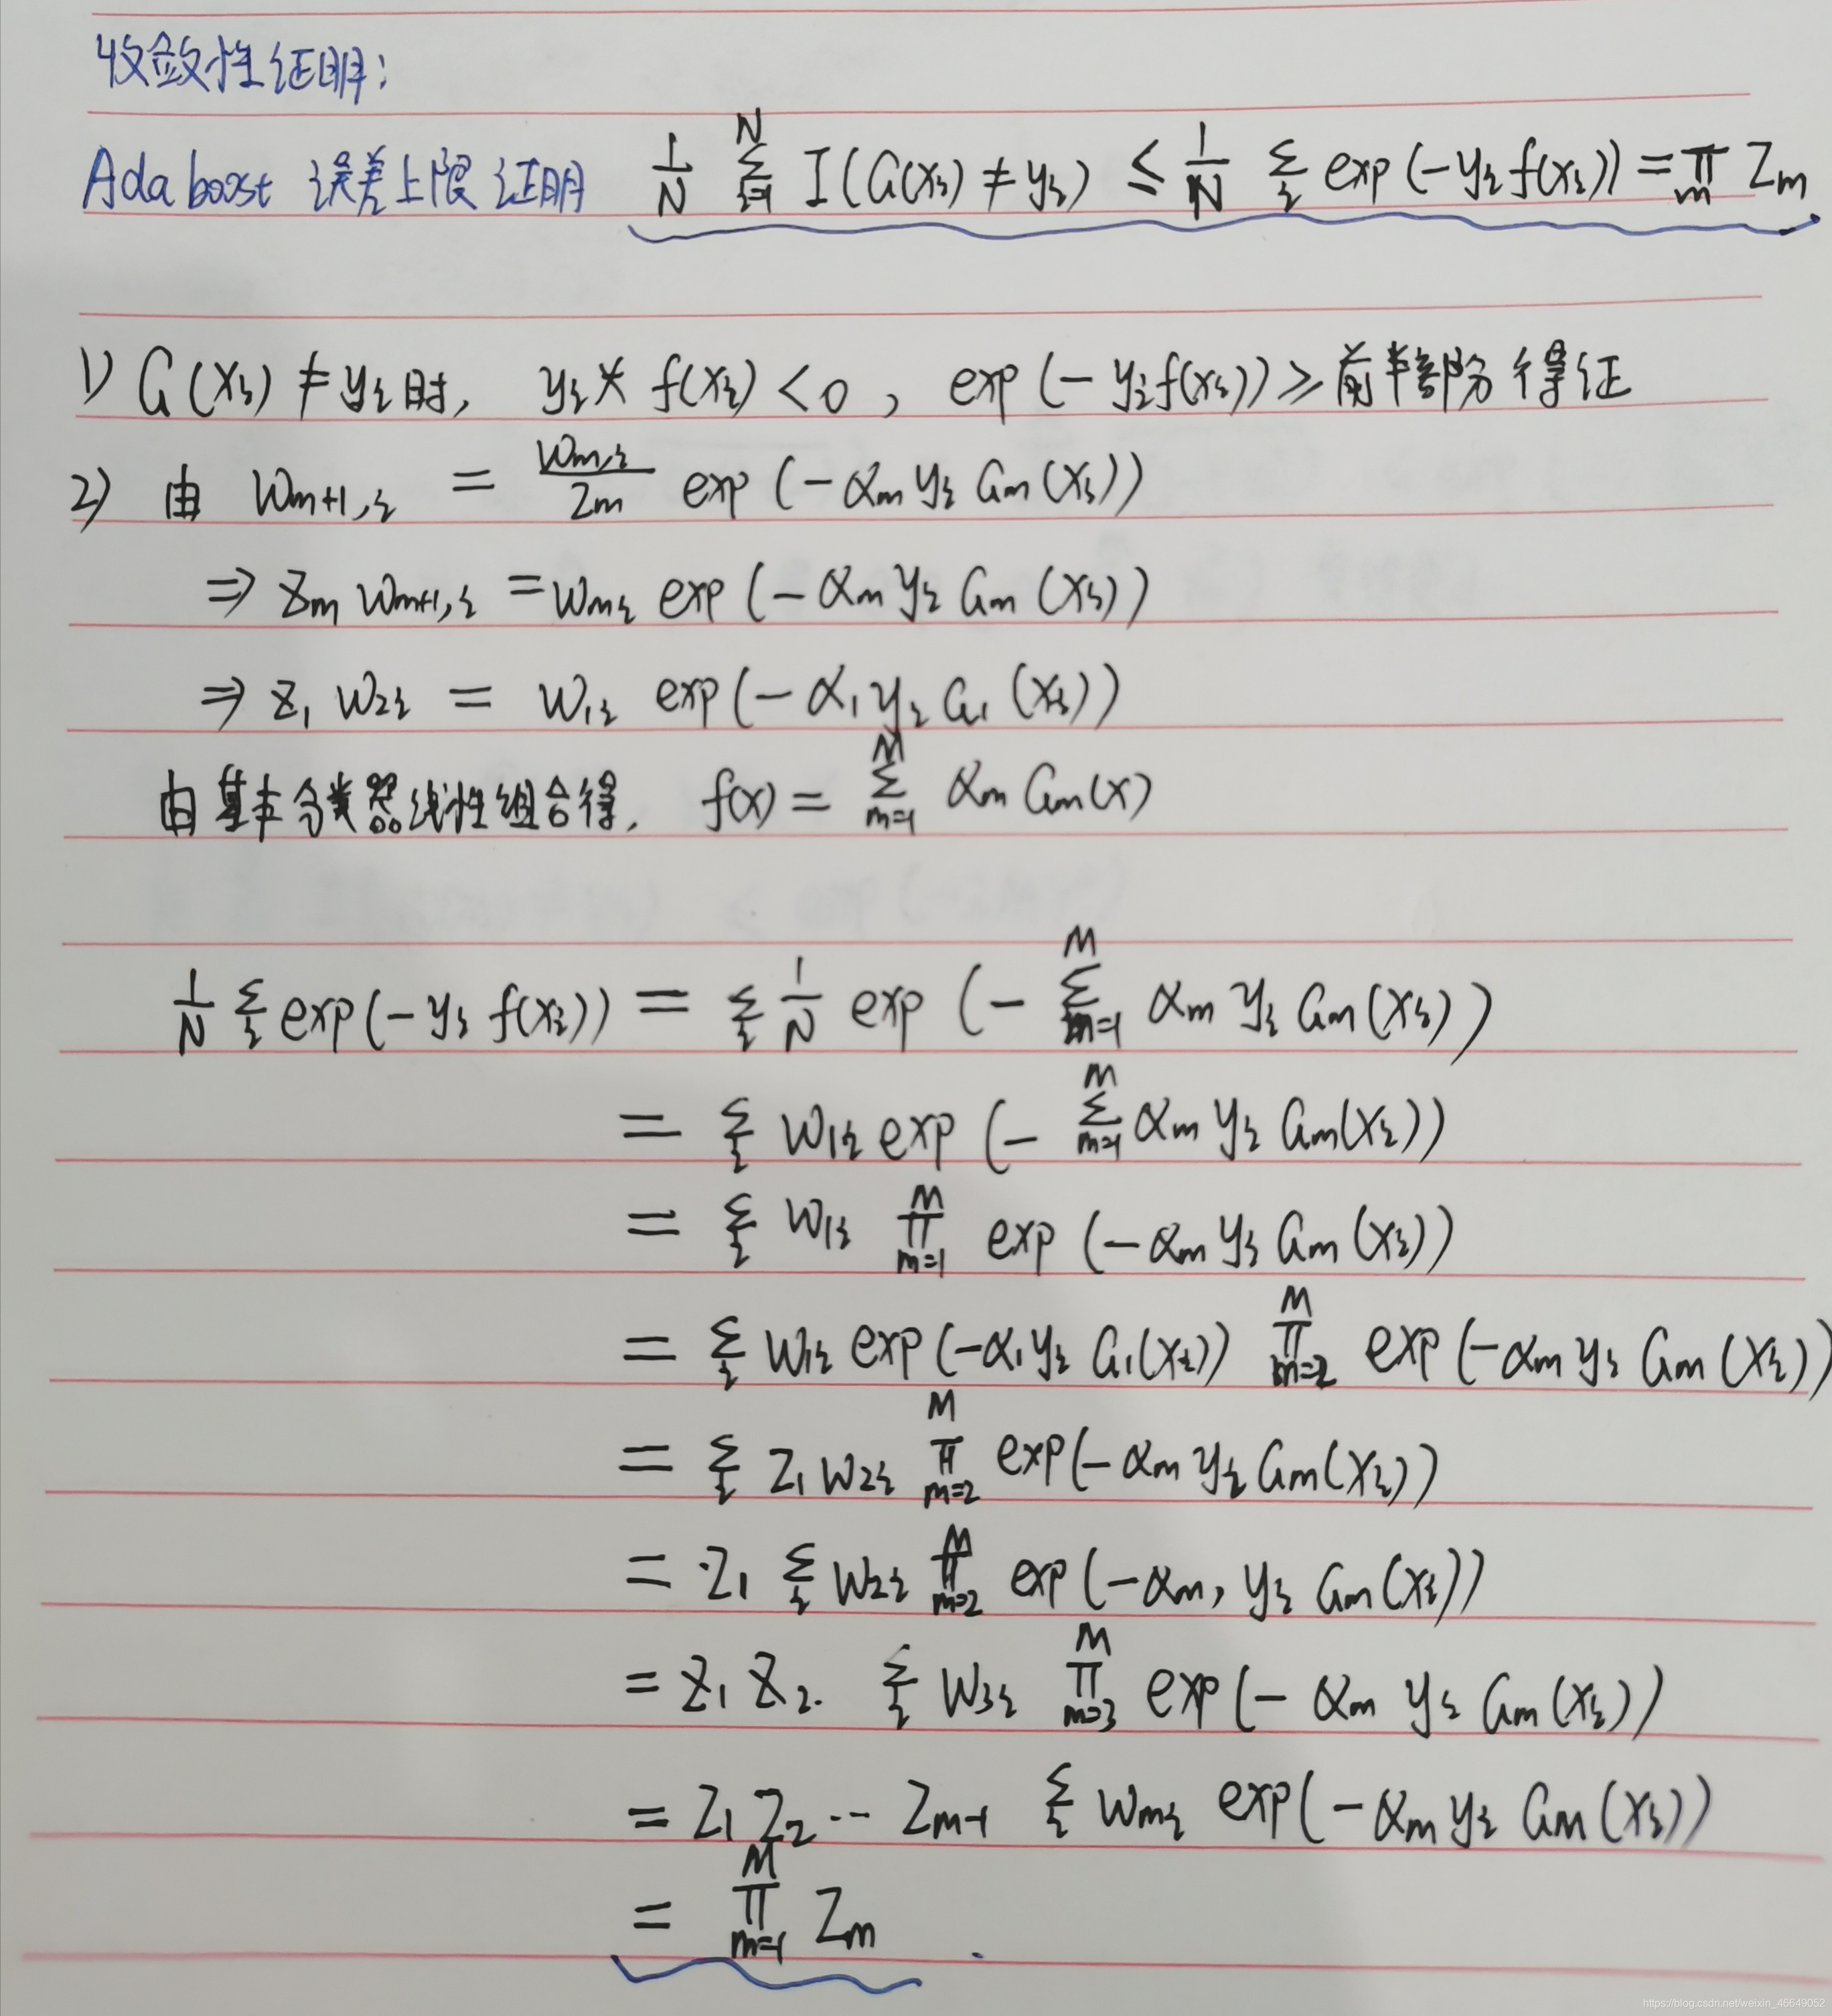 收敛性证明:
Adaboost 误差上限证明 1/N Σ_{i=1}^{N} I(G(xi) ≠ yi) ≤ 1/N Σ_i exp(-yi f(xi)) = Π_m Zm
1) G(xi) ≠ yi 时, yi * f(xi) < 0, exp(-yi f(xi)) ≥ 前半部分得证
2) 由 W_{m+1,i} = W_{m,i}/Zm exp(-αm yi Gm(xi))
⇒ Zm W_{m+1,i} = W_{mi} exp(-αm yi Gm(xi))
⇒ Z1 W_{2i} = W_{1i} exp(-α1 yi G1(xi))
由基本分类器线性组合得, f(x) = Σ_{m=1}^{M} αm Gm(x)
1/N Σ_i exp(-yi f(xi)) = Σ_i 1/N exp(-Σ_{m=1}^{M} αm yi Gm(xi))
= Σ_i W_{1i} exp(-Σ_{m=1}^{M} αm yi Gm(xi))
= Σ_i W_{1i} Π_{m=1}^{M} exp(-αm yi Gm(xi))
= Σ_i W_{1i} exp(-α1 yi G1(xi)) Π_{m=2}^{M} exp(-αm yi Gm(xi))
= Σ_i Z1 W_{2i} Π_{m=2}^{M} exp(-αm yi Gm(xi))
= Z1 Σ_i W_{2i} Π_{m=2}^{M} exp(-αm, yi Gm(xi))
= Z1 Z2. Σ_i W_{3i} Π_{m=3}^{M} exp(-αm yi Gm(xi))
= Z1 Z2 ... Z_{m-1} Σ_i W_{mi} exp(-αm yi Gm(xi))
= Π_{m=1}^{M} Zm .
https://blog.csdn.net/weixin_46649052